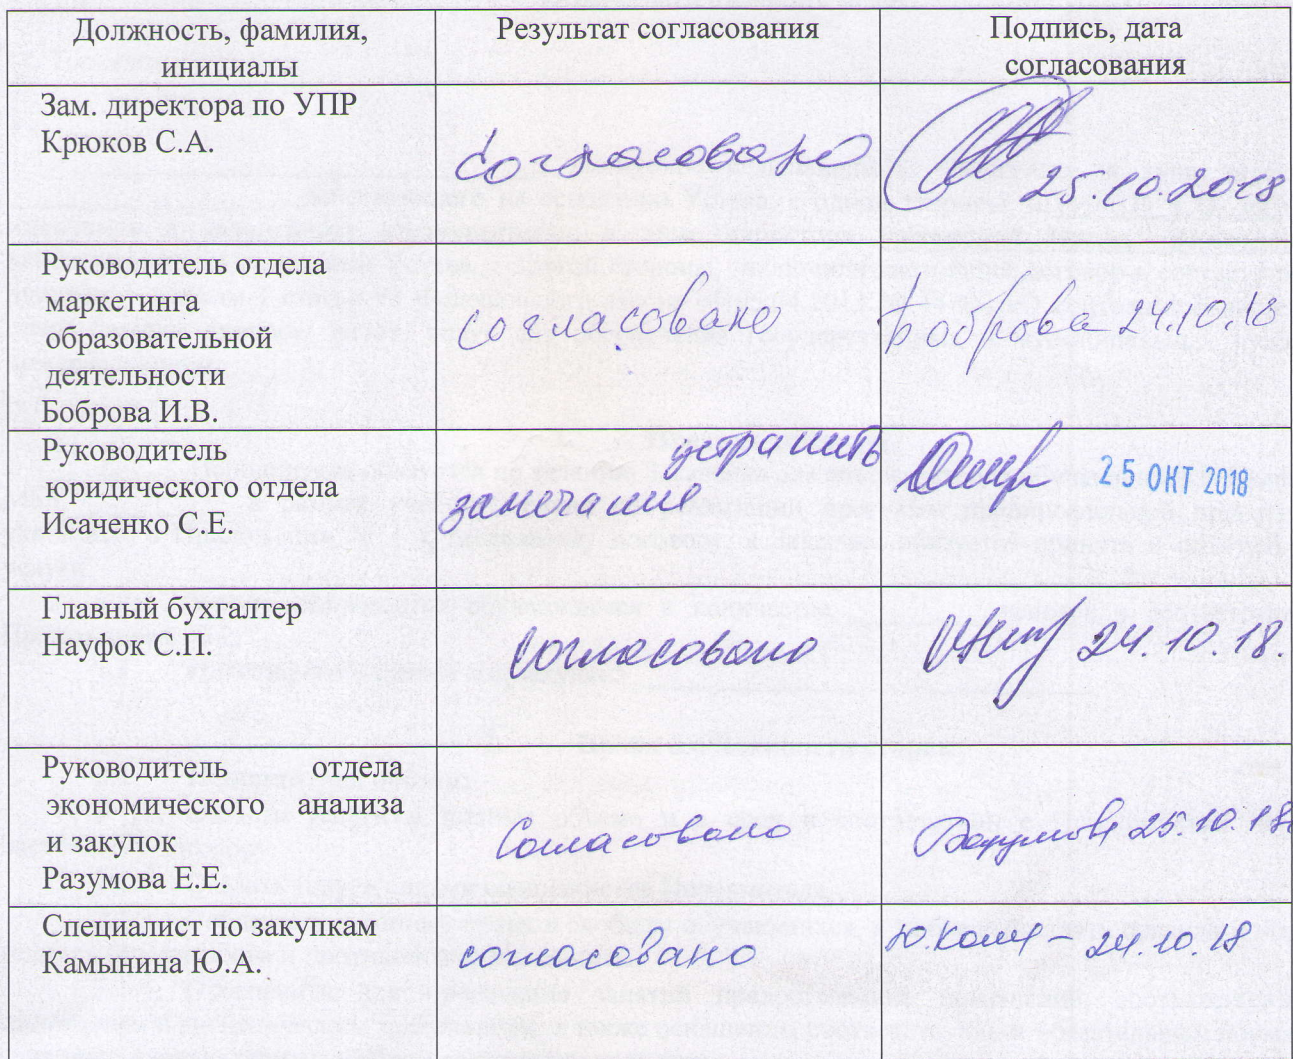 Должность, фамилия,
инициалы
Результат согласования
Подпись, дата
согласования
Зам. директора по УПР
Крюков С.А.
Согласовано
25.10.2018
Руководитель отдела
маркетинга
образовательной
деятельности
Боброва И.В.
согласовано
Боброва 24.10.18
Руководитель
юридического отдела
Исаченко С.Е.
устранить
замечание
25 ОКТ 2018
Главный бухгалтер
Науфок С.П.
Согласовано
24.10.18.
Руководитель отдела
экономического анализа
и закупок
Разумова Е.Е.
Согласовано
25.10.18
Специалист по закупкам
Камынина Ю.А.
согласовано
24.10.18